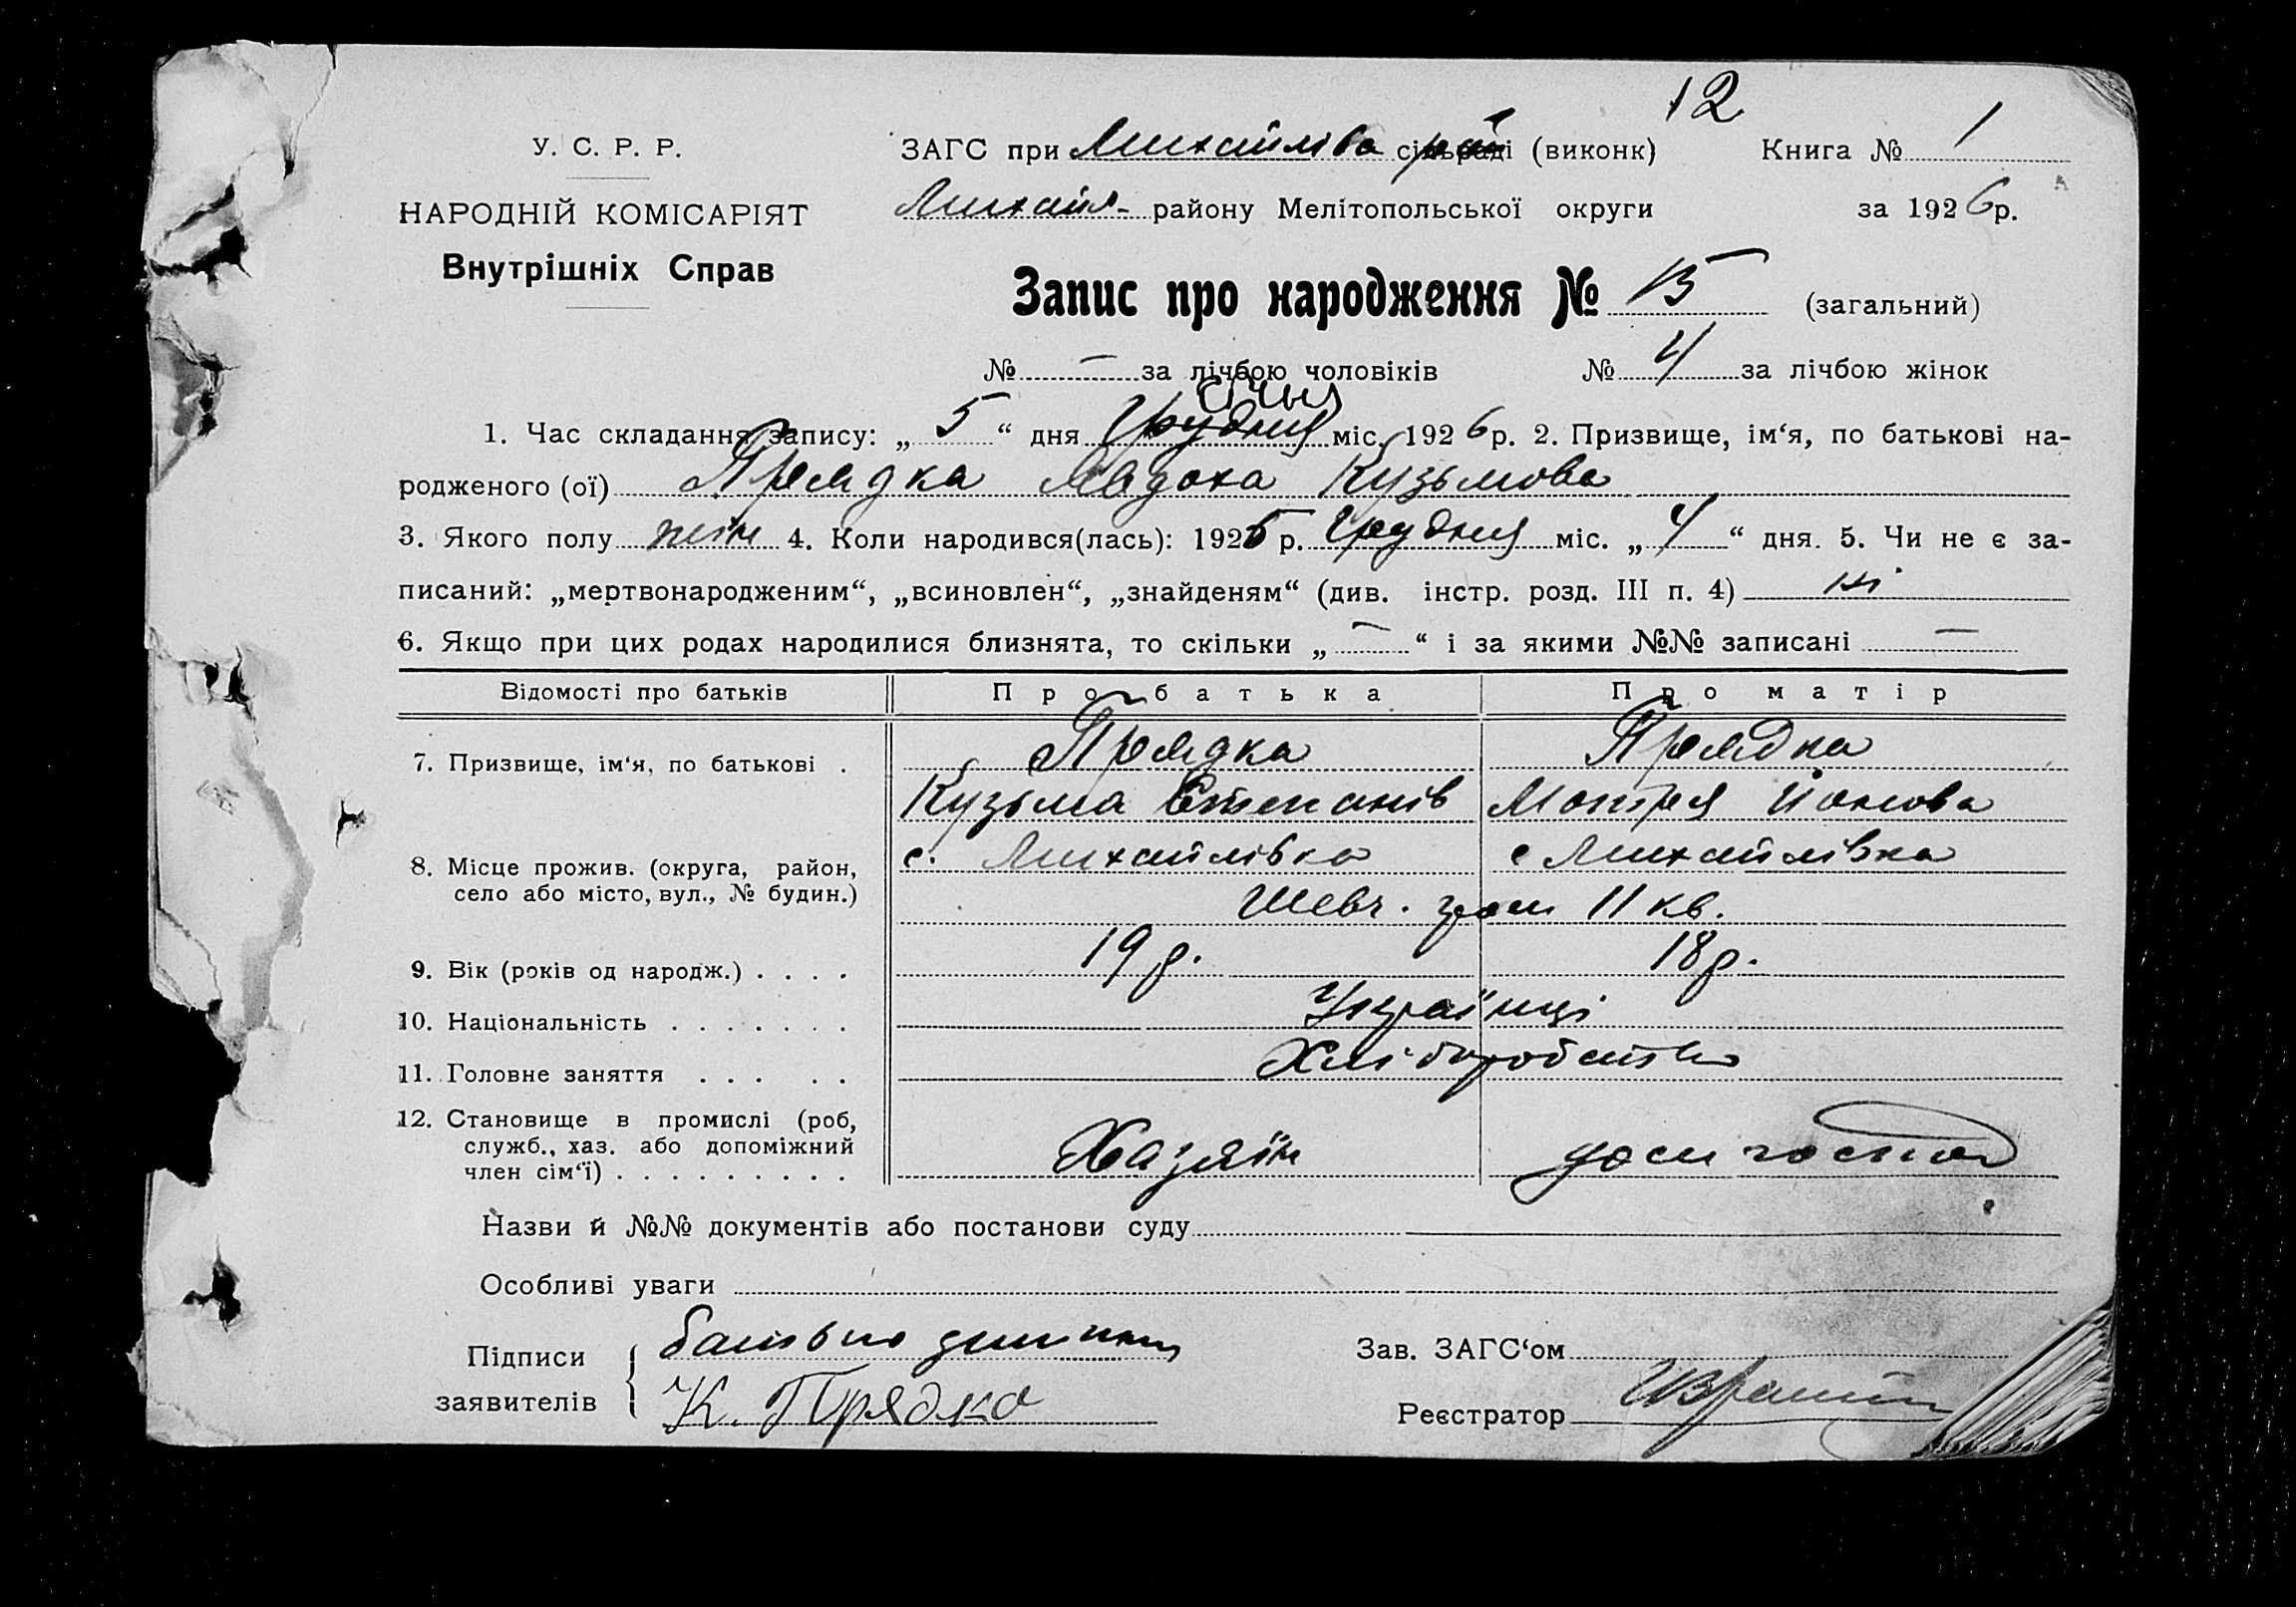 12
У. С. Р. Р.
ЗАГС при Михайлівс сільраді рай (виконк) Книга № 1
НАРОДНІЙ КОМІСАРІЯТ
Михайл- району Мелітопольської округи за 1926р.
Внутрішніх Справ
Запис про народження № 13 (загальний)
№ — за лічбою чоловіків № 4 за лічбою жінок
січня
1. Час складання запису: „ 5 “ дня Грудня міс. 1926р. 2. Призвище, ім‘я, по батькові на-
родженого (ої) Прядка Явдоха Кузьмова
3. Якого полу жін 4. Коли народився(лась): 1925 р. Грудня міс. „ 4 “ дня. 5. Чи не є за-
писаний: „мертвонародженим“, „всиновлен“, „знайденям“ (див. інстр. розд. III п. 4) ні
6. Якщо при цих родах народилися близнята, то скільки „ — “ і за якими №№ записані —
Відомості про батьків Про батька Про матір
7. Призвище, ім‘я, по батькові . Прядка Прядка
Кузьма Степанів Мотря Йонова
8. Місце прожив. (округа, район, с. Михайлівка с Михайлівка
село або місто, вул., № будин.) Шевч. гром 11 кв.
9. Вік (років од народж.) . . . . 19 р. 18 р.
10. Національність . . . . . . . Українці
11. Головне заняття . . . . . Хліборобство
12. Становище в промислі (роб,
служб., хаз. або допоміжний
член сім‘ї) . . . . . . . . . Хазяїн дом господ
Назви й №№ документів або постанови суду
Особливі уваги
Підписи батько дитини Зав. ЗАГС‘ом
заявителів К. Прядко Реєстратор